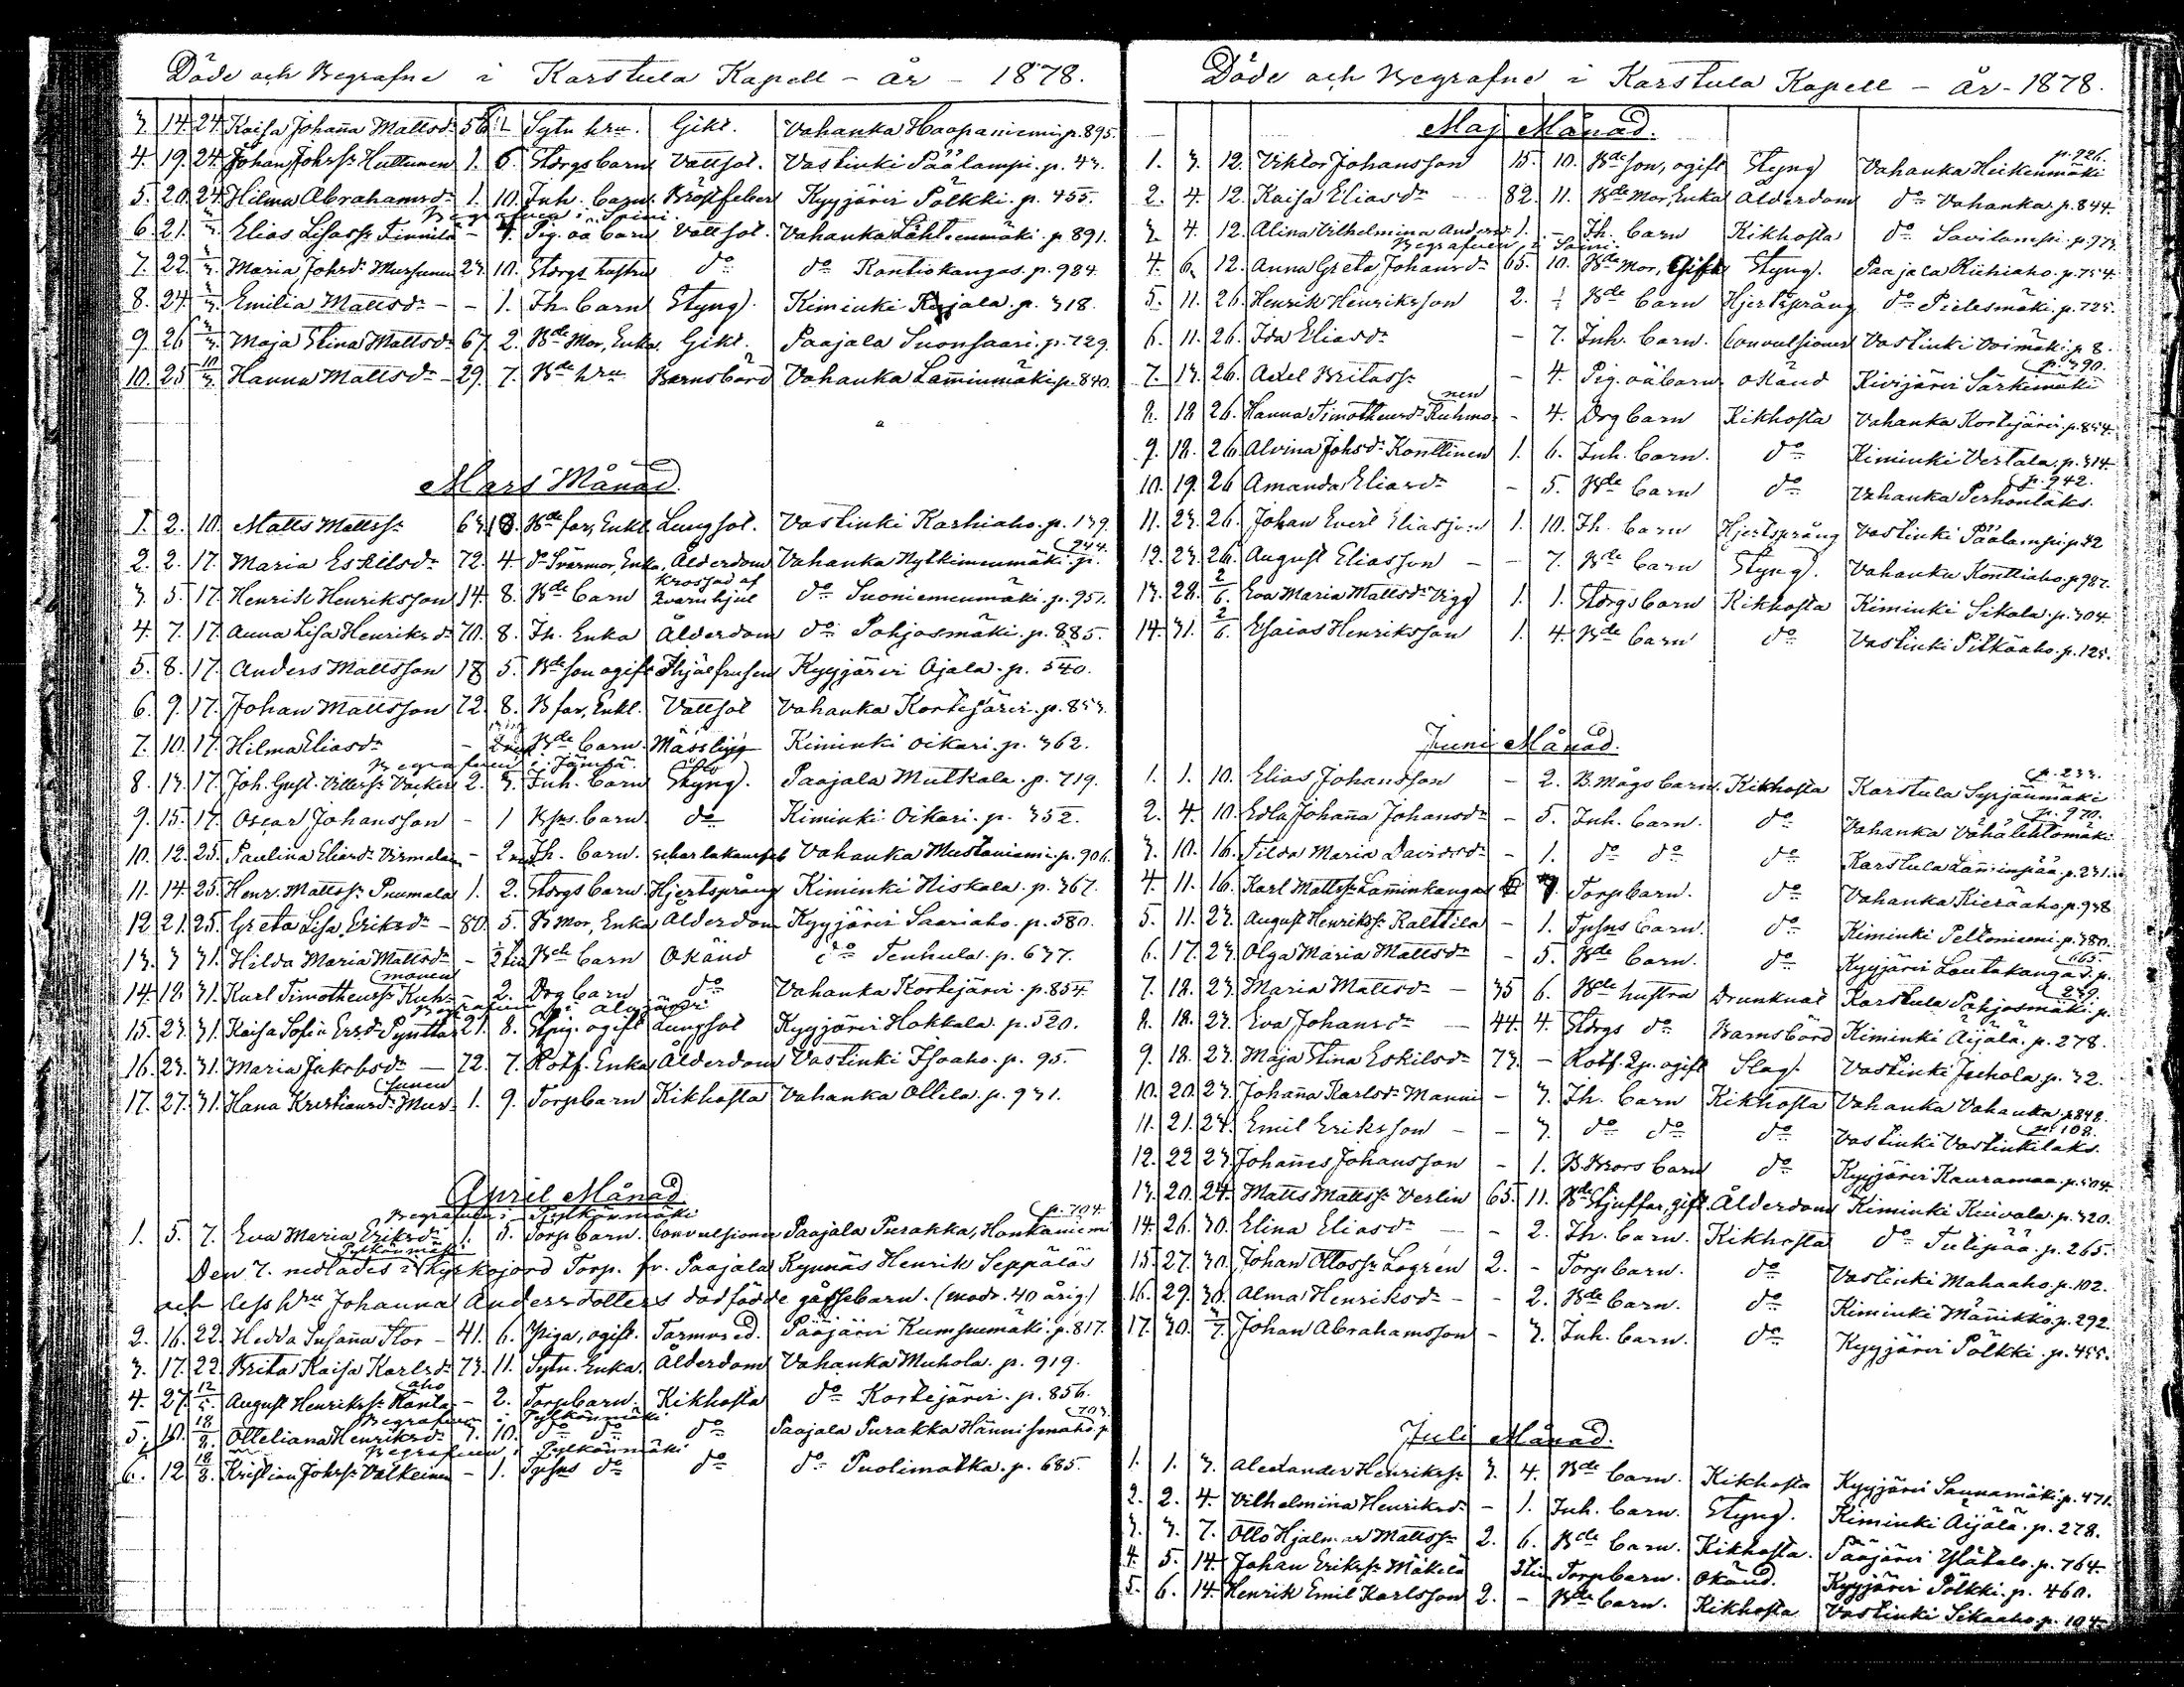 Döde och Begrafne i Karstula Kapell - år - 1878.
3. 14. 24. Kaisa Johana Mattsdr 56. Sytn hru. Gikt. Vahanka Haapaniemi p. 895.
4. 19. 24. Johan Johrsr Huttunen 1. 6. Stdrgs barn Vattsot. Vastinki Päälampi. p. 43.
5. 20. 24. Hilma Abrahamsdr 1. 10. Inh. barn. Kyyjärvi Pölkki. p. 455.
Begrafven i Saini.
6. 21. Elias Lisasr Finnilä - 4. Pig. oä barn Vattsot. Vahanka Lähteenmäki p. 891.
7. 22. Maria Johrdr Mursunen 23. 10. Stdrgs hustru do do Kontiokangas. p. 984.
8. 24. Emilia Mattsdr - - 1. Ih. barn Styng. Kiminki p. 318.
9. 26. Maja Stina Mattsdr 67. 2. Bde Mor, Enka. Gikt. Paajala Suonsaari. p. 729.
10. 25. Hanna Mattsdr - 29. 7. Bde hru Barnsbörd Vahanka Lamminmäki p. 840.
Mars Månad.
1. 2. 10. Matts Mattssr 63. 8. Bde far, Enkl. Lungsot. Vastinki Karhiaho. p. 139.
944.
2. 2. 17. Maria Eskilsdr 72. 4. Svärmor, Enka. Ålderdom Vahanka Nytkimenmäki. p.
krossad af
3. 5. 17. Henrik Henriksson 14. 8. Bde barn qvarnhjul do Suoniemenmäki. p. 951.
4. 7. 17. Anna Lisa Henriksdr 70. 8. Ih. Enka Ålderdom do Pohjasmäki. p. 885.
5. 8. 17. Anders Mattsson 18 5. Bde son ogift Ihjälfrusen Kyyjärvi Ojala. p. 540.
6. 9. 17. Johan Mattsson 72. 8. B far, Enkl. Vattsot Vahanka Kortejärvi. p. 853.
7. 10. 17. Hilma Eliasdr - Bde barn. Mässling Kiminki Oikari. p. 362.
Begrafven i Jämsä.
8. 13. 17. Joh. Gust. Villersr Vacker 2. 3. Inh. barn Styng. Paajala Mutkala. p. 719.
9. 15. 17. Oscar Johansson - 1 barn do Kiminki Oikari. p. 352.
10. 12. 25. Paulina Eliasdr Virmalan - 2 Ih. barn. Scharlakansfeb Vahanka Mustaniemi. p. 906.
11. 14 25. Henr. Mattssr Puumala 1. 2. Stdrgs barn Hjertsprång Kiminki Niskala. p. 367.
12 21. 25. Greta Lisa Eriksdr - 80. 5. B Mor, Enka Ålderdom Kyyjärvi Saariaho. p. 580.
13. 3 31. Hilda Maria Mattsdr - Bde barn Okänd do Tenhula. p. 637.
monen
14. 18. 31. Karl Timotheussr Kuh- - 2. Drg barn do Vahanka Kortejärvi. p. 854.
Begrafven i Alajärvi
15. 23. 31. Kaisa Sofia Ersdr Pynttar 21. 8. Stpig. ogift Lungsot Kyyjärvi Hokkala. p. 520.
16. 23. 31. Maria Jakobsdr - 72. 7. Rotf. Enka Ålderdom Vastinki Isoaho. p. 95.
sunen
17. 27. 31. Hana Kristiansdr Mur- 1. 9. Torpbarn Kikhosta Vahanka Ollila. p. 931.
April Månad
Begrafven i Pylkönmäki p. 704.
1. 5. 7. Eva Maria Eriksdr 1. 5. Torpbarn. Convulsioner Paajala Purakka, Honkaniemi
Pylkönmäki
Den 7. nedlades i kyrkojord Torp. fr. Paajala Kynnäs Henrik Seppäläs
och dess hru Johanna Andersdotters dödfödde gåssebarn. (modr. 40 årig.)
2. 16. 22. Hedda Susana Stor - 41. 6. piga, ogift. Tarmvred. Pääjärvi Kumpumäki. p. 817.
3. 17. 22. Brita Kaisa Karlsdr 73. 11. Sytn. Enka. Ålderdom Vahanka Muhola. p. 919.
aho
4. 27. 12/5. August Henrikssr Ranta- - 2. Torpbarn. Kikhosta do Kortejärvi. p. 856.
Begrafven i Pylkönmäki 703.
5. 10. 18/8. Otteliana Henriksdr 3. 10. do do do Paajala Purakka Hännisenaho. p
Begrafven i Pylkönmäki
6. 12 18/8. Kristian Johrsr Valkeinen - 1. Tpsns do do do Puolimatka. p. 685.
Döde och Begrafne i Karstula Kapell - år - 1878.
Maj Månad.
p. 926.
1. 3. 12. Viktor Johansson 15. 10. Bde son, ogift Styng Vahanka Heikenmäki
2. 4. 12. Kaisa Eliasdr 82. 11. Bde Mor, Enka Ålderdom do Vahanka. p. 844.
3. 4. 12. Alina Vilhelmina Andersdr 1. - Ih. barn Kikhosta do Savilampi. p. 973.
Begrafven i Saini.
4. 6. 12. Anna Greta Johansdr 65. 10. Bde Mor, Gift Styng. Paajala Riihiaho. p. 754.
5. 11. 26. Henrik Henriksson 2. Bde barn Hjertsprång do Pielesmäki. p. 725.
6. 11. 26. Ida Eliasdr - 7. Inh. barn. Convulsioner Vastinki Voimäki. p. 8.
p. 390.
7. 13. 26. Axel Britassr - 4. Pig. oä barn okänd Kivijärvi Särkimäki
nen
8. 18 26. Hanna Timotheusdr Kuhmo- - 4. Drg barn Kikhosta Vahanka Kortejärvi. p. 854.
9. 18. 26. Alvina Johsdr Konttinen 1. 6. Inh. barn. do Kiminki Vertala. p. 314.
p. 942.
10. 19. 26 Amanda Eliasdr - 5. Bde barn do Vahanka Perhonlaks.
11. 23. 26. Johan Evert Eliasson 1. 10. Ih. barn Hjertsprång Vastinki Päälampi. p. 42
12. 23. 26. August Eliasson - - 7. Bde barn Styng. Vahanka Konttiaho. p. 987.
13. 28. 2/6. Eva Maria Mattsdr Vigg 1. 1. Stdrgs barn Kikhosta Kiminki Sikala. p. 304.
14. 31. 2/6. Esaias Henriksson 1. 4. Bde barn do Vastinki Pitkäaho. p. 125.
Juni Månad.
p. 233.
1. 1. 10. Elias Johansson - 2. B. Mågs barn. Kikhosta Karstula Syrjänmäki
p. 970.
2. 4. 10. Edla Johana Johansdr - 5. Inh. barn. do Vahanka Vähälehtomäki
3. 10. 16. Tilda Maria Davidsdr - 1. do do do Karstula Lamminpää. p. 231.
4. 11. 16. Karl Mattssr Lamminkangas Torpbarn. do Vahanka Kieräaho. p. 938
5. 11. 23. August Henrikssr Kalttila - 1. Tpsns barn. do Kiminki Peltoniemi. p. 380.
665.
6. 17. 23. Olga Maria Mattsdr - 5. Bde barn. do Kyyjärvi Lautakangas. p.
239.
7. 18. 23. Maria Mattsdr - 35 6. Bde hustru Drunknat Karstula Pohjosmäki. p.
8. 18. 23. Eva Johansdr - 44. 4. Stdrgs do Barnsbörd Kiminki Äijälä. p. 278.
9. 18. 23. Maja Stina Eskilsdr 73. - Rotf. Qp. ogift Slag. Vastinki Juhola. p. 32.
10. 20. 23. Johana Karlsdr Manni - 3. Ih. barn Kikhosta Vahanka Vahanka. p. 848.
p. 108.
11. 21. 23. Emil Eriksson - - 3. do do do Vastinki Vastinkilaks.
12. 22 23. Johannes Johansson - 1. B. Brors barn do Kyyjärvi Kauramaa. p. 504.
13. 20. 24. Matts Mattssr Verlin 65. 11. Bde Stjuffar, gift. Ålderdom Kiminki Kuivala. p. 320.
14. 26. 30. Elina Eliasdr - 2. Ih. barn. Kikhosta do Tulipää. p. 265.
15. 27. 30. Johan Ottossr Logren 2. - Torpbarn. do Vastinki Mahaaho. p. 102.
16. 29. 30. Alma Henriksdr - - 2. Bde barn. do Kiminki Männikkö. p. 292.
17. 30. 3/7. Johan Abrahamsson - 3. Inh. barn. do Kyyjärvi Pölkki. p. 455.
Juli Månad.
1. 1. 3. Alexander Henrikssr 3. 4. Bde barn. Kikhosta Kyyjärvi Saunamäki. p. 471.
2. 2. 4. Vilhelmina Henriksdr - 1. Inh. barn. Styng. Kiminki Äijälä. p. 278.
3. 3. 7. Otto Hjalmar Mattssr 2. 6. Bde barn. Kikhosta. Pääjärvi Ylätalo. p. 764.
4. 5. 14. Johan Erikssr Mäkelä Torpbarn. Okänd. Kyyjärvi Pölkki. p. 460.
5. 6. 14. Henrik Emil Karlsson 2. - Bde barn. Kikhosta Vastinki Sikaaho. p. 104.